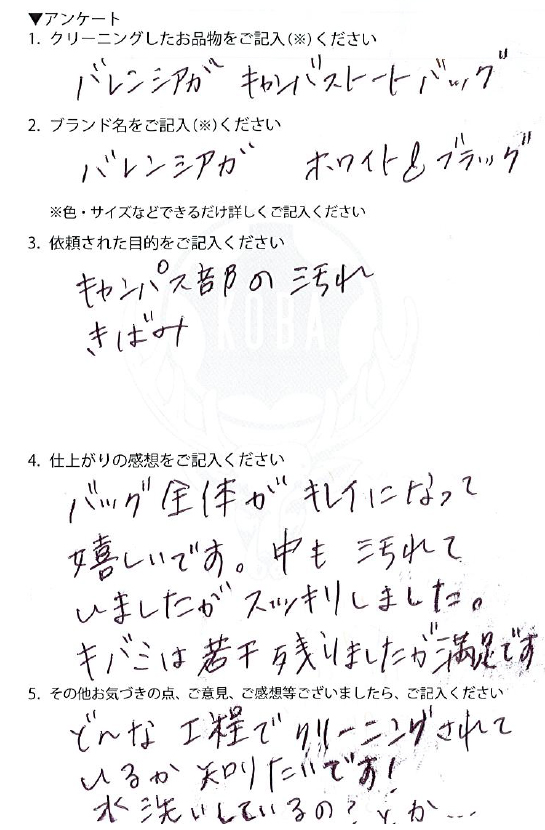 ▼アンケート
1. クリーニングしたお品物をご記入(※)ください
バレンシアガ キャンバストートバッグ
2. ブランド名をご記入(※)ください
バレンシアガ ホワイト&ブラック
※色・サイズなどできるだけ詳しくご記入ください
3. 依頼された目的をご記入ください
キャンパス部の汚れ
きばみ
KOBA
4. 仕上がりの感想をご記入ください
バッグ全体がキレイになって
嬉しいです。中も汚れて
いましたがスッキリしました。
キバミは若干残りましたが満足です
5. その他お気づきの点、ご意見、ご感想等ございましたら、ご記入ください
どんな工程でクリーニングされて
いるか知りたいです!
水洗いしているの?とか...